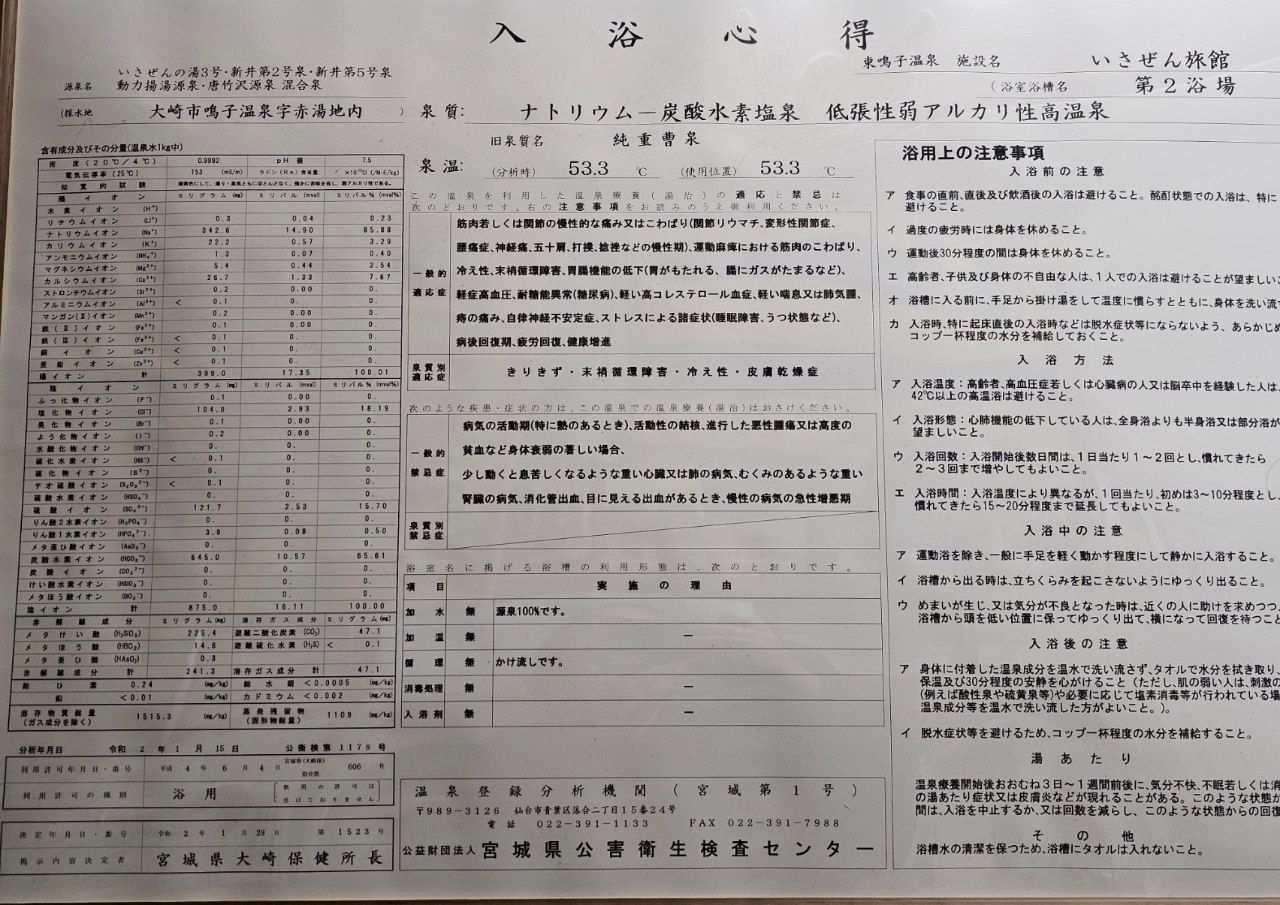 入浴心得
源泉名 いさぜんの湯3号・新井第2号泉・新井第5号泉
動力揚湯源泉・唐竹沢源泉 混合泉
(採水地 大崎市鳴子温泉字赤湯地内 )
東鳴子温泉 施設名 いさぜん旅館
(浴室浴槽名 第2浴場
泉質: ナトリウム-炭酸水素塩泉 低張性弱アルカリ性高温泉
旧泉質名 純重曹泉
泉温: (分析時) 53.3 ℃ (使用位置) 53.3 ℃
含有成分及びその分量(温泉水1kg中)
密度(20℃/4℃) 0.9992 pH値 7.5
電気伝導率(25℃) 153 (mS/m) ラドン(Rn)含有量 / ×10⁻¹⁰Ci (/M-E/kg)
知覚的試験
陽イオン ミリグラム(mg) ミリバル(mval) ミリバル%(mval%)
水素イオン (H⁺)
リチウムイオン (Li⁺) 0.3 0.04 0.23
ナトリウムイオン (Na⁺) 342.6 14.90 85.88
カリウムイオン (K⁺) 22.2 0.57 3.29
アンモニウムイオン (NH₄⁺) 1.3 0.07 0.40
マグネシウムイオン (Mg²⁺) 5.4 0.44 2.54
カルシウムイオン (Ca²⁺) 26.7 1.33 7.67
ストロンチウムイオン (Sr²⁺) 0.2 0.00 0.
アルミニウムイオン (Al³⁺) < 0.1 0. 0.
マンガン(Ⅱ)イオン (Mn²⁺) 0.2 0.00 0.
鉄(Ⅱ)イオン (Fe²⁺) 0.1 0.00 0.
鉄(Ⅲ)イオン (Fe³⁺) < 0.1 0. 0.
銅イオン (Cu²⁺) < 0.1 0. 0.
亜鉛イオン (Zn²⁺) < 0.1 0. 0.
陽イオン計 399.0 17.35 100.01
陰イオン ミリグラム(mg) ミリバル(mval) ミリバル%(mval%)
ふっ化物イオン (F⁻) 0.1 0.00 0.
塩化物イオン (Cl⁻) 104.0 2.93 18.19
臭化物イオン (Br⁻) 0.1 0.00 0.
よう化物イオン (I⁻) 0.2 0.00 0.
水酸化物イオン (OH⁻) 0. 0. 0.
硫化水素イオン (HS⁻) < 0.1 0. 0.
硫化物イオン (S²⁻) 0. 0. 0.
チオ硫酸イオン (S₂O₃²⁻) < 0.1 0. 0.
硫酸水素イオン (HSO₄⁻) 0. 0. 0.
硫酸イオン (SO₄²⁻) 121.7 2.53 15.70
りん酸2水素イオン (H₂PO₄⁻) 0. 0. 0.
りん酸1水素イオン (HPO₄²⁻) 3.9 0.08 0.50
メタ亜ひ酸イオン (AsO₂⁻) 0. 0. 0.
炭酸水素イオン (HCO₃⁻) 645.0 10.57 65.61
炭酸イオン (CO₃²⁻) 0. 0. 0.
けい酸水素イオン (HSiO₃⁻) 0. 0. 0.
メタほう酸イオン (BO₂⁻) 0. 0. 0.
陰イオン計 875.0 16.11 100.00
非解離成分 ミリグラム(mg) 溶存ガス成分 ミリグラム(mg)
メタけい酸 (H₂SiO₃) 226.4 遊離二酸化炭素(CO₂) 47.1
メタほう酸 (HBO₂) 14.6 遊離硫化水素(H₂S) < 0.1
メタ亜ひ酸 (HAsO₂) 0.3
非解離成分計 241.3 溶存ガス成分計 47.1
総ひ素 0.24 (mg/kg) 総水銀 <0.0005 (mg/kg)
鉛 <0.01 (mg/kg) カドミウム <0.002 (mg/kg)
溶存物質総量 1515.3 (mg/kg) 蒸発残留物 1109 (mg/kg)
(ガス成分を除く) (固形物総量)
分析年月日 令和2年1月15日 公衛検第1178号
利用許可年月日・番号 平成4年6月4日 宮城県(大崎保) 指令第 606 号
利用許可の種別 浴用 [飲用の許可は
受けておりません]
決定年月日・番号 令和2年1月29日 第1523号
掲示内容決定者 宮城県大崎保健所長
この温泉を利用した温泉療養(湯治)の適応と禁忌は
次のとおりです。右の注意事項をお読みのうえ御利用ください。
一般的適応症
筋肉若しくは関節の慢性的な痛み又はこわばり(関節リウマチ、変形性関節症、
腰痛症、神経痛、五十肩、打撲、捻挫などの慢性期)、運動麻痺における筋肉のこわばり、
冷え性、末梢循環障害、胃腸機能の低下(胃がもたれる、腸にガスがたまるなど)、
軽症高血圧、耐糖能異常(糖尿病)、軽い高コレステロール血症、軽い喘息又は肺気腫、
痔の痛み、自律神経不安定症、ストレスによる諸症状(睡眠障害、うつ状態など)、
病後回復期、疲労回復、健康増進
泉質別適応症 きりきず・末梢循環障害・冷え性・皮膚乾燥症
次のような疾患・症状の方は、この温泉での温泉療養(湯治)はおさけください。
一般的禁忌症
病気の活動期(特に熱のあるとき)、活動性の結核、進行した悪性腫瘍又は高度の
貧血など身体衰弱の著しい場合、
少し動くと息苦しくなるような重い心臓又は肺の病気、むくみのあるような重い
腎臓の病気、消化管出血、目に見える出血があるとき、慢性の病気の急性増悪期
泉質別禁忌症
浴室名に掲げる浴槽の利用形態は、次のとおりです。
項目 実施の理由
加水 無 源泉100%です。
加温 無 ―
循環 無 かけ流しです。
消毒処理 無 ―
入浴剤 無 ―
温泉登録分析機関(宮城第1号)
〒989-3126 仙台市青葉区落合二丁目15番24号
電話 022-391-1133 FAX 022-391-7988
公益財団法人 宮城県公害衛生検査センター
浴用上の注意事項
入浴前の注意
ア 食事の直前、直後及び飲酒後の入浴は避けること。酩酊状態での入浴は、特に
避けること。
イ 過度の疲労時には身体を休めること。
ウ 運動後30分程度の間は身体を休めること。
エ 高齢者、子供及び身体の不自由な人は、1人での入浴は避けることが望ましい
オ 浴槽に入る前に、手足から掛け湯をして温度に慣らすとともに、身体を洗い流
カ 入浴時、特に起床直後の入浴時などは脱水症状等にならないよう、あらかじめ
コップ一杯程度の水分を補給しておくこと。
入浴方法
ア 入浴温度：高齢者、高血圧症若しくは心臓病の人又は脳卒中を経験した人は、
42℃以上の高温浴は避けること。
イ 入浴形態：心肺機能の低下している人は、全身浴よりも半身浴又は部分浴が
望ましいこと。
ウ 入浴回数：入浴開始後数日間は、1日当たり1～2回とし、慣れてきたら
2～3回まで増やしてもよいこと。
エ 入浴時間：入浴温度により異なるが、1回当たり、初めは3～10分程度とし、
慣れてきたら15～20分程度まで延長してもよいこと。
入浴中の注意
ア 運動浴を除き、一般に手足を軽く動かす程度にして静かに入浴すること。
イ 浴槽から出る時は、立ちくらみを起こさないようにゆっくり出ること。
ウ めまいが生じ、又は気分が不良となった時は、近くの人に助けを求めつつ、
浴槽から頭を低い位置に保ってゆっくり出て、横になって回復を待つこ
入浴後の注意
ア 身体に付着した温泉成分を温水で洗い流さず、タオルで水分を拭き取り、
保温及び30分程度の安静を心がけること(ただし、肌の弱い人は、刺激の
(例えば酸性泉や硫黄泉等)や必要に応じて塩素消毒等が行われている場
温泉成分等を温水で洗い流した方がよいこと。)。
イ 脱水症状等を避けるため、コップ一杯程度の水分を補給すること。
湯あたり
温泉療養開始後おおむね3日～1週間前後に、気分不快、不眠若しくは消
の湯あたり症状又は皮膚炎などが現れることがある。このような状態が
間は、入浴を中止するか、又は回数を減らし、このような状態からの回復
その他
浴槽水の清潔を保つため、浴槽にタオルは入れないこと。